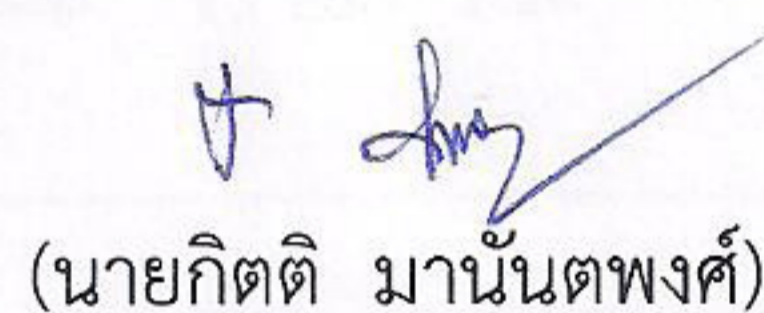 (นายกิตติ มานันตพงศ์)